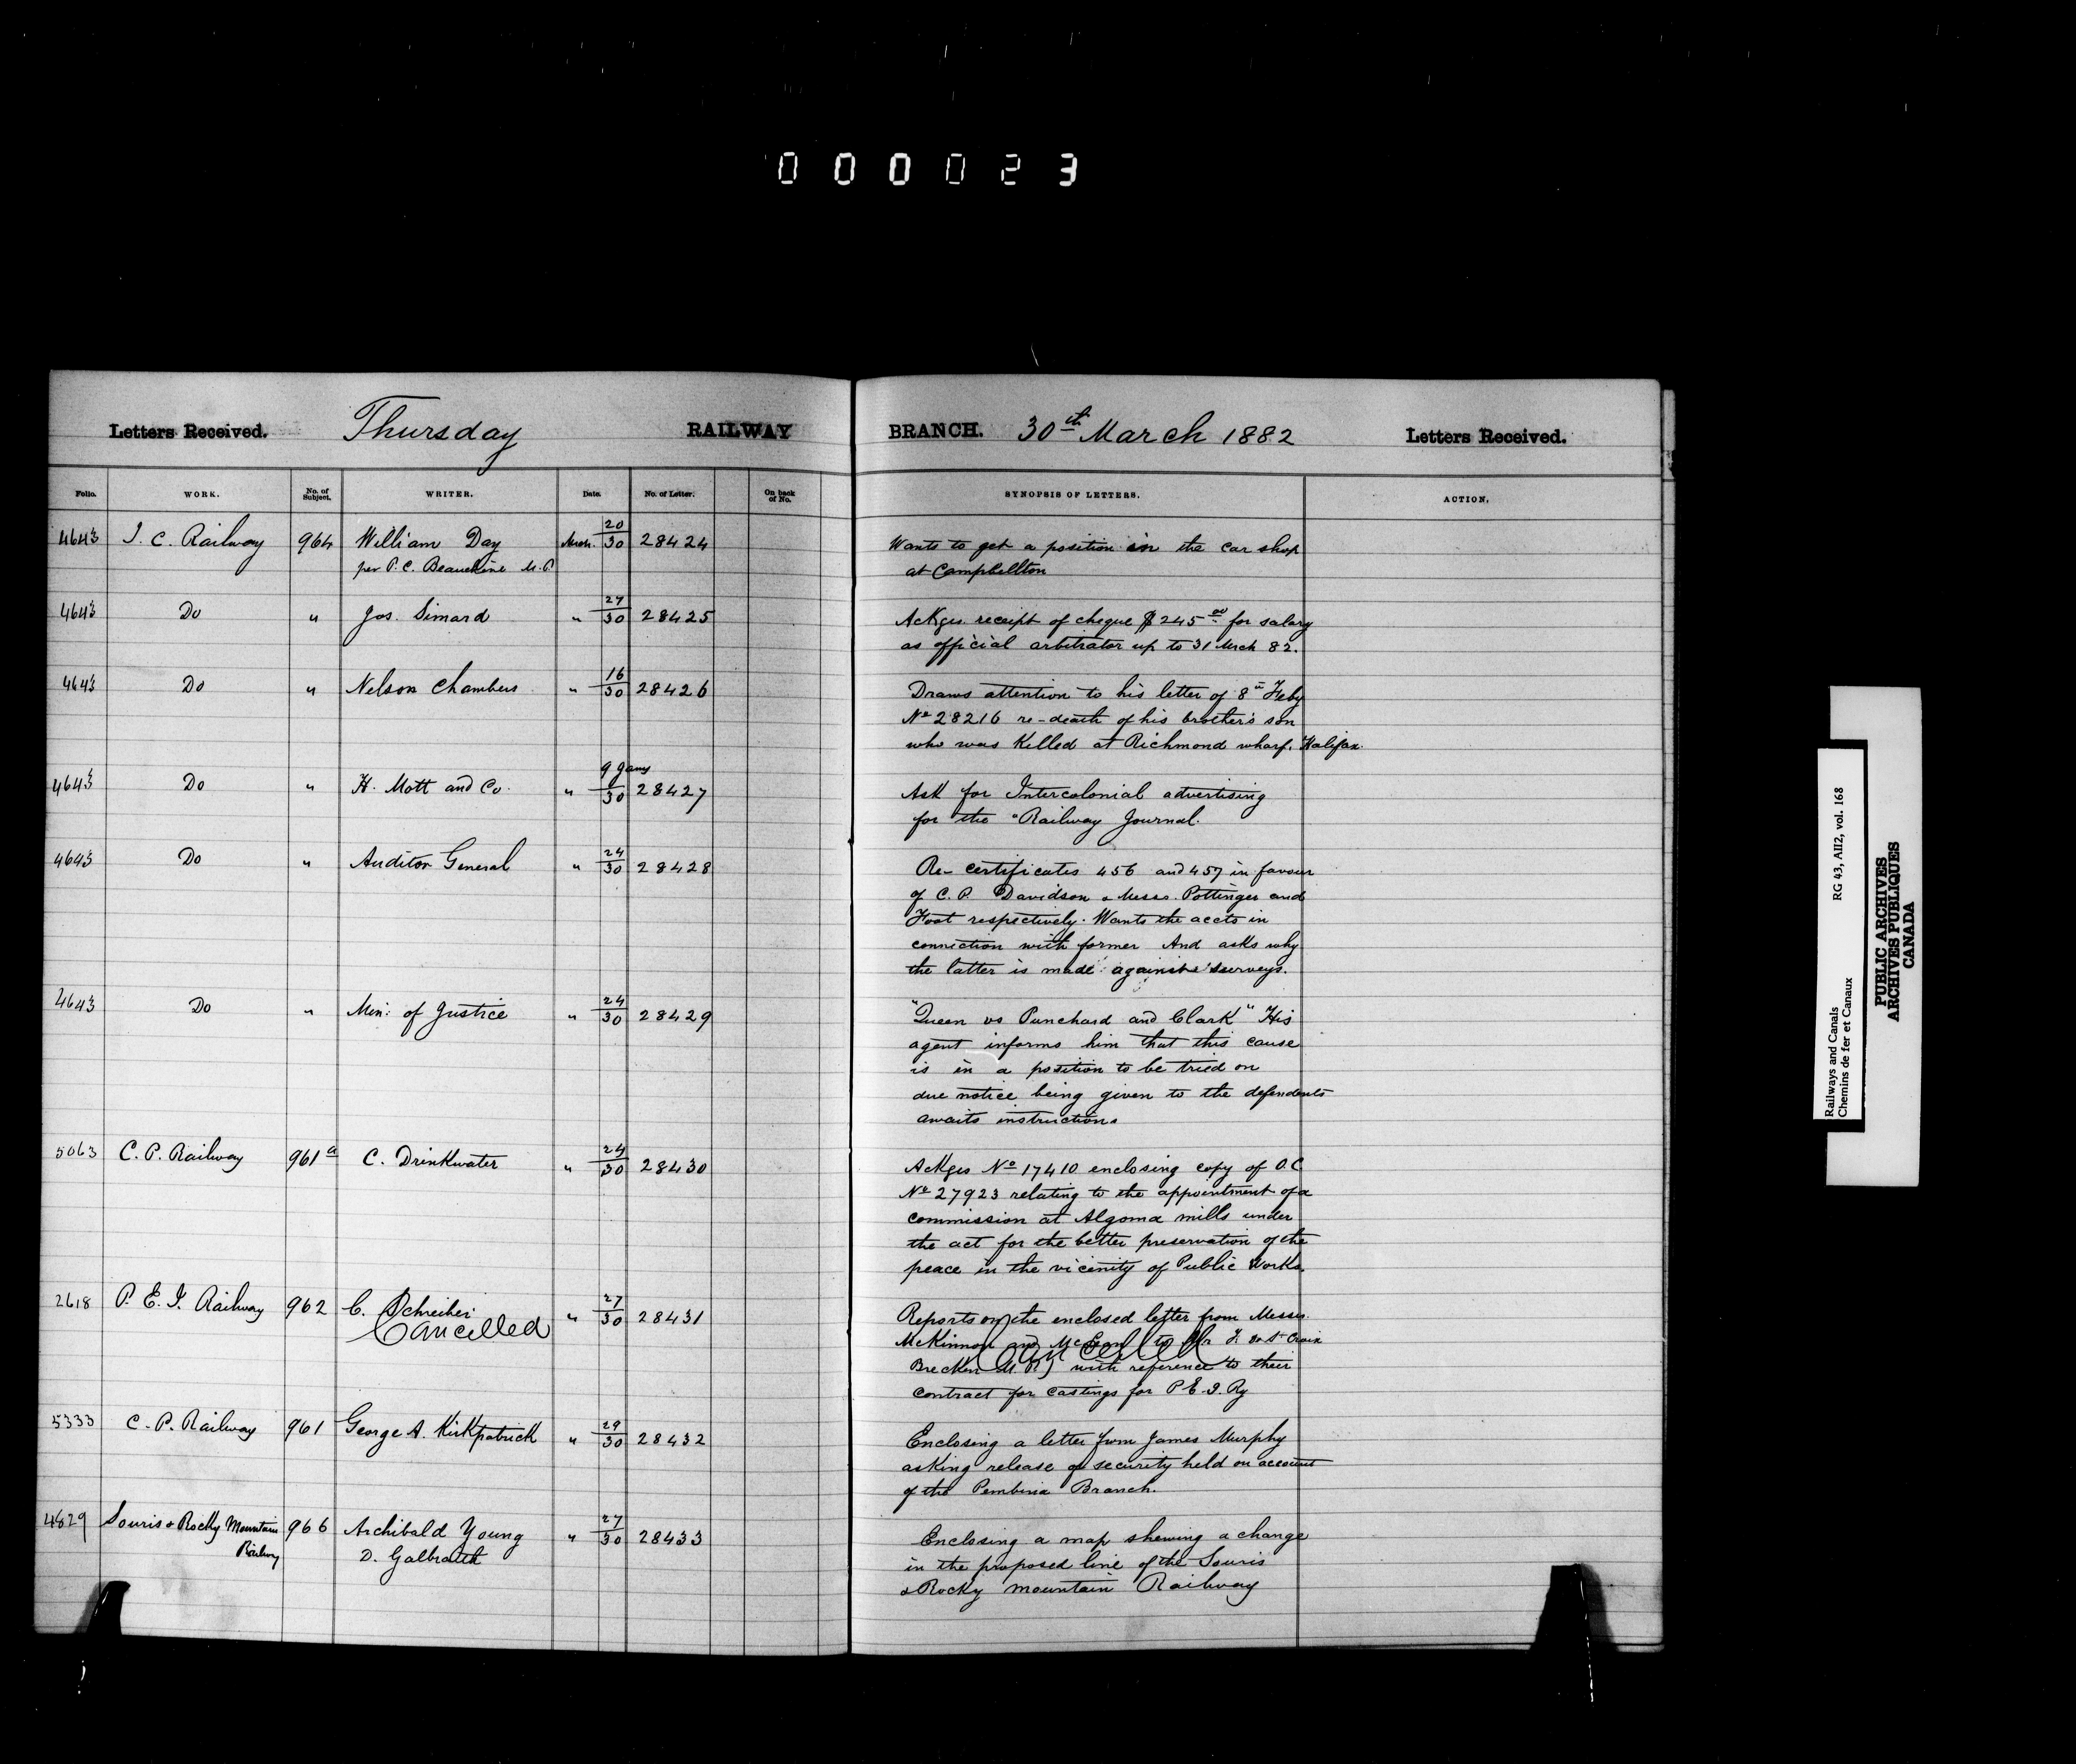 000023
Letters Received. Thursday RAILWAY BRANCH. 30th March 1882 Letters Received.
Folio. WORK. No. of Subject. WRITER. Date. No. of Letter. On back of No. SYNOPSIS OF LETTERS. ACTION.
4643 I. C. Railway 964 William Day Mch. 20/30 28424 Wants to get a position in the car shop
per P. C. Beauchine M.P. at Campbellton
4643 Do " Jos. Simard " 27/30 28425 Ackges receipt of cheque $245 00 for salary
as official arbitrator up to 31 Mrch 82.
4643 Do " Nelson Chambers " 16/30 28426 Draws attention to his letter of 8th Feby
No 28216 re-death of his brother's son
who was killed at Richmond wharf, Halifax.
4643 Do " H. Mott and Co. " 9 Jany/30 28427 Ask for Intercolonial advertising
for the "Railway Journal.
4643 Do " Auditor General " 24/30 28428 Re- certificates 456 and 457 in favour
of C. P. Davidson & Messrs. Pottinger and
Foot respectively. Wants the accts in
conniction with former And asks why
the latter is made against surveys.
4643 Do " Min: of Justice " 24/30 28429 "Queen vs Punchard and Clark" His
agent informs him that this cause
is in a position to be tried on
due notice being given to the defendents
awaits instructions
5063 C. P. Railway 961a C. Drinkwater " 24/30 28430 Ackges No 17410 enclosing copy of O.C
No 27923 relating to the appointment of a
commission at Algoma mills under
the act for the better preservation of the
peace in the vicinity of Public Works.
2618 P. E. I. Railway 962 C. Schreiber " 27/30 28431 Reports on the enclosed letter from Messrs.
Cancelled McKinnon and McLean to Mr F. de St Croix
Cancelled
Brecken M.P.) with reference to their
contract for castings for P.E.I. Ry
5333 C. P. Railway 961 George A. Kirkpatrick " 29/30 28432 Enclosing a letter from James Murphy
asking release of security held on account
of the Pembina Branch.
4829 Souris & Rocky Mountain 966 Archibald Young " 27/30 28433 Enclosing a map shewing a change
Railway D. Galbraith in the proposed line of the Souris
& Rocky Mountain Railway
Railways and Canals RG 43, AII2, vol. 168
Chemins de fer et Canaux
PUBLIC ARCHIVES
ARCHIVES PUBLIQUES
CANADA